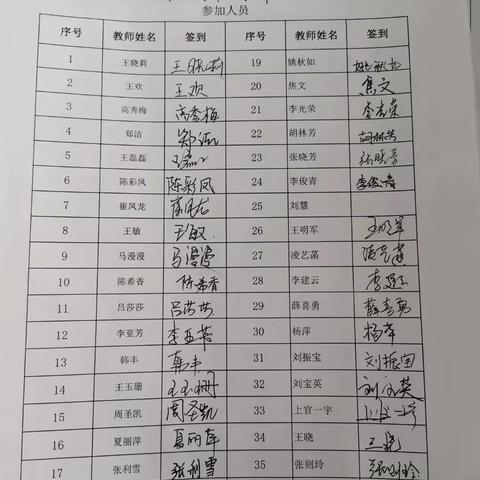 参加人员
序号 教师姓名 签到 序号 教师姓名 签到
1 王晓莉 王晓莉 19 姚秋如 姚秋如
2 王欢 王欢 20 焦文 焦文
3 高秀梅 高秀梅 21 李光荣 李光荣
4 郑洁 郑洁 22 胡林芳 胡林芳
5 王磊磊 23 张晓芳 张晓芳
6 陈彩凤 陈彩凤 24 李俊青 李俊青
7 崔风龙 崔风龙 25 刘慧
8 王敏 王敏 26 王明军 王明军
9 马漫漫 马漫漫 27 凌艺菡 凌艺菡
10 陈希香 陈希香 28 李建云 李建云
11 吕莎莎 吕莎莎 29 薛喜勇 薛喜勇
12 李亚芳 李亚芳 30 杨萍 杨萍
13 韩丰 韩丰 31 刘振宝 刘振宝
14 王玉珊 王玉珊 32 刘宝英 刘宝英
15 周圣凯 周圣凯 33 上官一宇 上官一宇
16 夏丽萍 夏丽萍 34 王晓 王晓
17 张利雪 张利雪 35 张则玲 张则玲